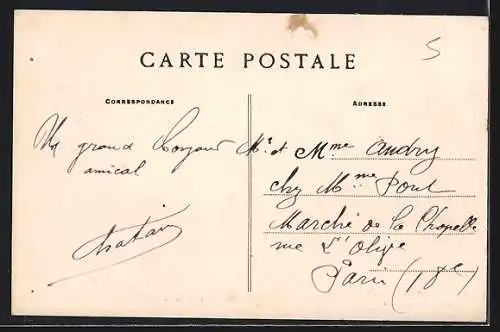 S
CARTE POSTALE
CORRESPONDANCE
ADRESSE
Un grand bonjour
amical
Mr et Mme Audry
chez Mme Pont
Marché de la Chapelle
rue L'Olive
Paris (18e)